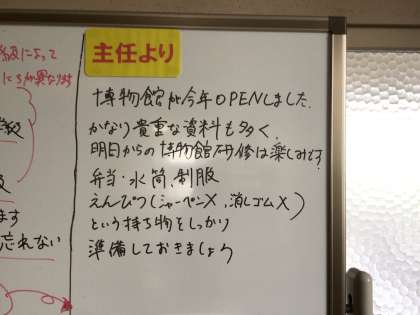 級によって
にちが異なります
主任より
博物館が今年OPENしました.
かなり貴重な資料も多く、
明日からの博物館研修は楽しみです
弁当・水筒、制服
えんぴつ(シャーペンX,消しゴムX)
という持ち物をしっかり
準備しておきましょう
級
ます
忘れない